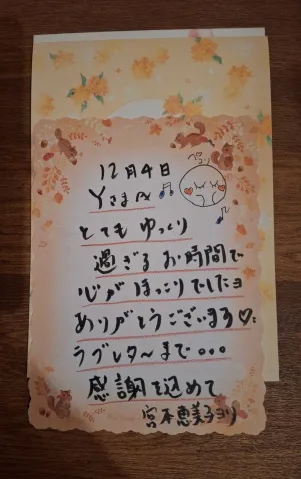 12月4日
ペコリ
Yさまへ
とてもゆっくり
過ごるお時間で
心がほっこりでしたヨ
ありがとうございまする♡
ラブレターまで。。。
感謝を込めて
宮本恵美子ヨリ